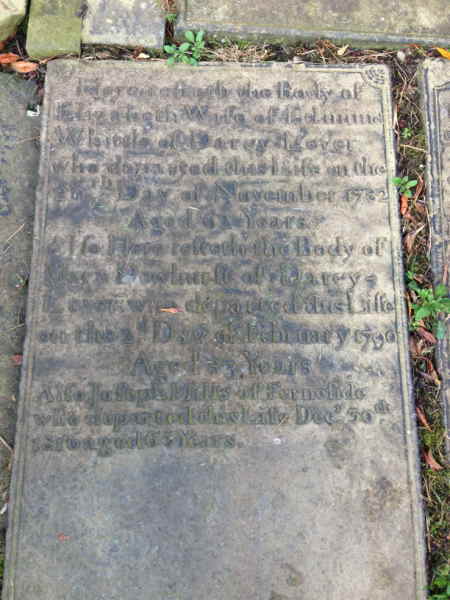 Here resteth the Body of
Elizabeth Wife of Edmund
Whittle of Darcy Lever
who departed this Life on the
Day of November 1782
Aged 61 Years.
Also Here resteth the Body of
Mary of Darcy-
Lever who departed this Life
on the 2d Day of February 1790
Aged 23 Years
Also Joseph Hills of Fernside
who departed this Life Decr. 30th
1810 aged 63 Years.